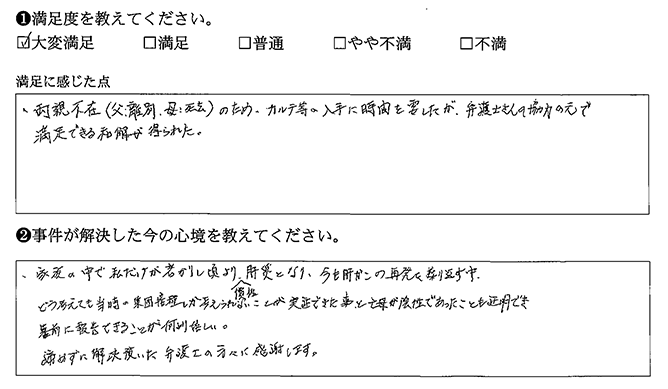 ❶満足度を教えてください。
☑大変満足 □満足 □普通 □やや不満 □不満
満足に感じた点
、両親不在(父:離別、母:死去)のため、カルテ等の入手に時間を要したが、弁護士さんの協力の元で
満足できる和解が得られた。
❷事件が解決した今の心境を教えてください。
、家族の中で私だけが若かりし頃より、肝炎となり、今も肝がんの再発を繰り返す中、
どう考えても当時の集団接種しか考えられないことが実証できた事と亡母が陰性であったことも証明でき
墓前に報告できることが何より嬉しい。
諦めずに解決頂いた弁護士の方々に感謝します。